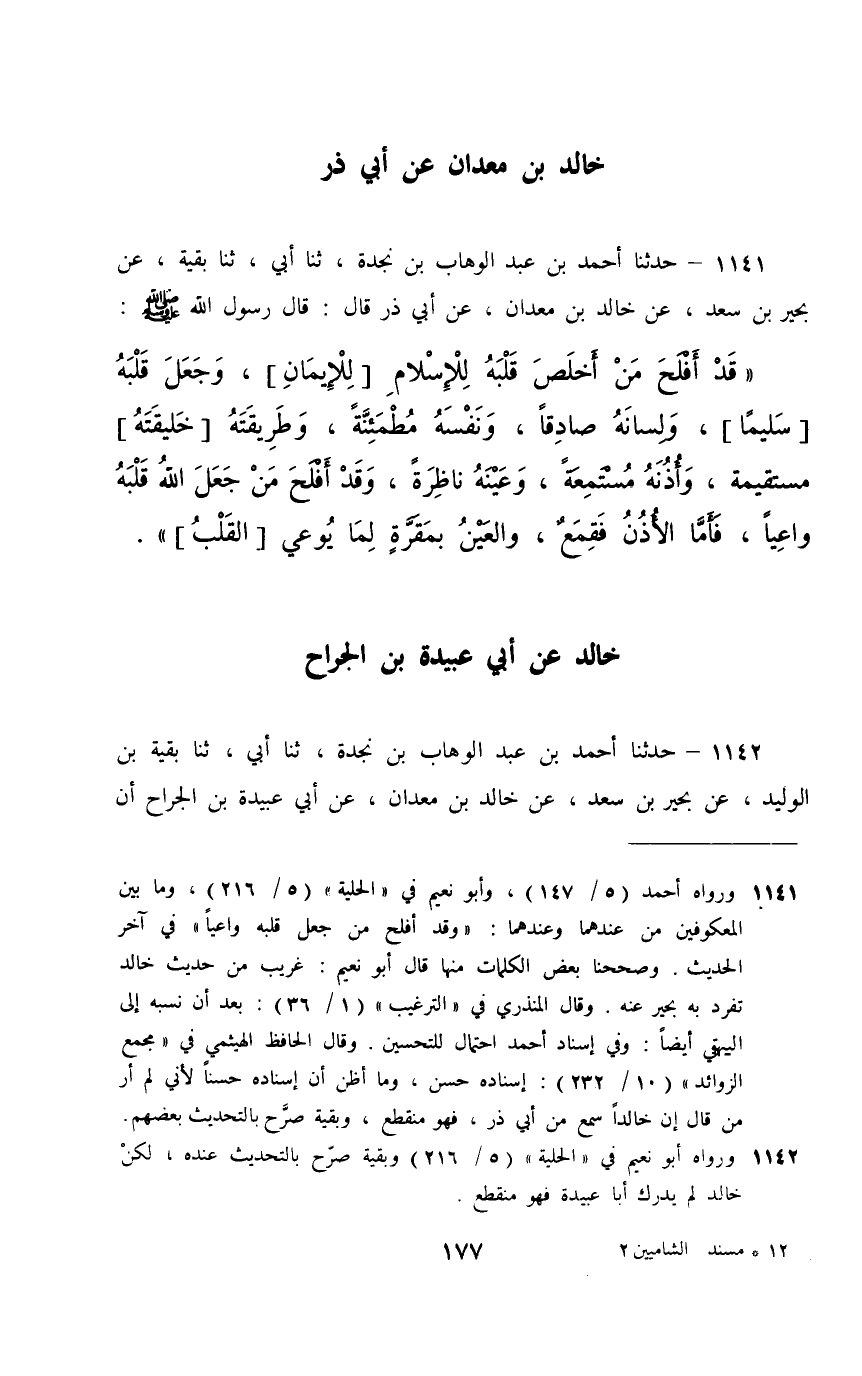 خالد بن معدان عن أبي ذر
١١٤١ – حدثنا أحمد بن عبد الوهاب بن نجدة ، ثنا أبي ، ثنا بقية ، عن
بحير بن سعد ، عن خالد بن معدان ، عن أبي ذر قال : قال رسول الله ﷺ :
« قَدْ أَفْلَحَ مَنْ أَخلَصَ قَلْبَهُ لِلْإِسْلامِ [ لِلْإِيمَانِ ] ، وَجَعَلَ قَلْبَهُ
[ سَلِيمًا ] ، وَلِسانَهُ صادِقاً ، وَنَفْسَهُ مُطْمَئِنَّةً ، وَطَرِيقَتَهُ [ خَلِيقَتَهُ ]
مستقيمة ، وَأُذُنَهُ مُسْتَمِعَةً ، وَعَيْنَهُ ناظِرَةً ، وَقَدْ أَفْلَحَ مَنْ جَعَلَ اللهُ قَلْبَهُ
واعِياً ، فَأَمَّا الأُذُنُ فَقِمَعٌ ، والعَيْنُ بمَقَرَّةٍ لِمَا يُوعي [ القَلْبُ ] » .
خالد عن أبي عبيدة بن الجراح
١١٤٢ – حدثنا أحمد بن عبد الوهاب بن نجدة ، ثنا أبي ، ثنا بقية بن
الوليد ، عن بحير بن سعد ، عن خالد بن معدان ، عن أبي عبيدة بن الجراح أن
١١٤١ ورواه أحمد ( ٥ / ١٤٧ ) ، وأبو نعيم في « الحلية » ( ٥ / ٢١٦ ) ، وما بين
المعكوفين من عندهما وعندهما : « وقد أفلح من جعل قلبه واعياً » في آخر
الحديث . وصححنا بعض الكلمات منها قال أبو نعيم : غريب من حديث خالد
تفرد به بحير عنه . وقال المنذري في « الترغيب » ( ١ / ٣٦ ) : بعد أن نسبه إلى
البيهقي أيضاً : وفي إسناد أحمد احتمال للتحسين . وقال الحافظ الهيثمي في « مجمع
الزوائد » ( ١٠ / ٢٣٢ ) : إسناده حسن ، وما أظن أن إسناده حسناً لأني لم أر
من قال إن خالداً سمع من أبي ذر ، فهو منقطع ، وبقية صرَّح بالتحديث بعضهم.
١١٤٢ ورواه أبو نعيم في « الحلية » ( ٥ / ٢١٦ ) وبقية صرّح بالتحديث عنده ، لكنْ
خالد لم يدرك أبا عبيدة فهو منقطع .
١٢ * مسند الشاميين ٢
١٧٧